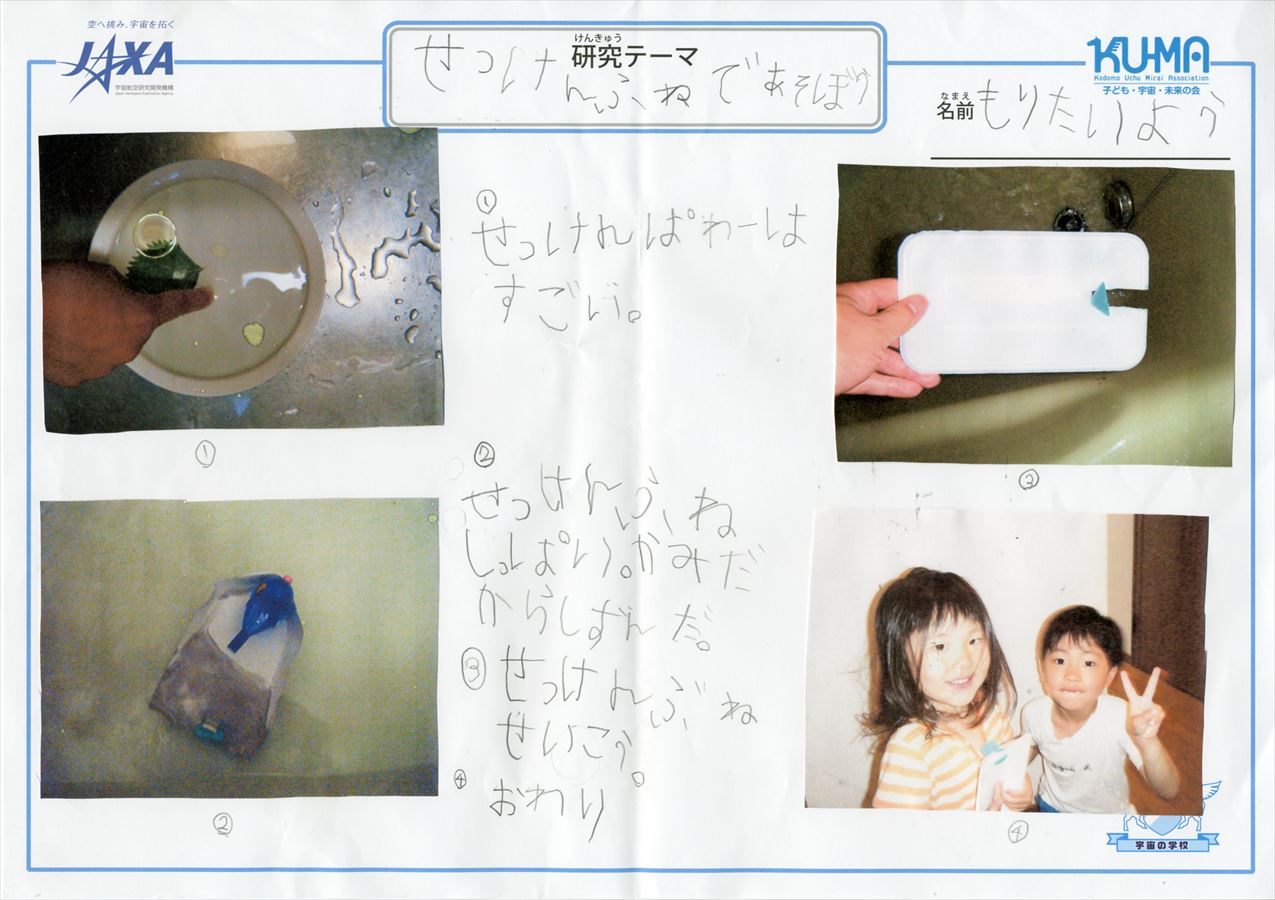 空へ挑み、宇宙を拓く
JAXA
宇宙航空研究開発機構
Japan Aerospace Exploration Agency
けんきゅう
研究テーマ
せっけんぶねであそぼう
KU-MA
Kodomo Uchu Mirai Association
子ども・宇宙・未来の会
なまえ
名前 もりたいよう
①
せっけんぱわーは
すごい。
①
②
せっけんぶね
しっぱい。かみだ
からしずんだ。
③ せっけんぶね
せいこう。
④ おわり
②
③
④
宇宙の学校